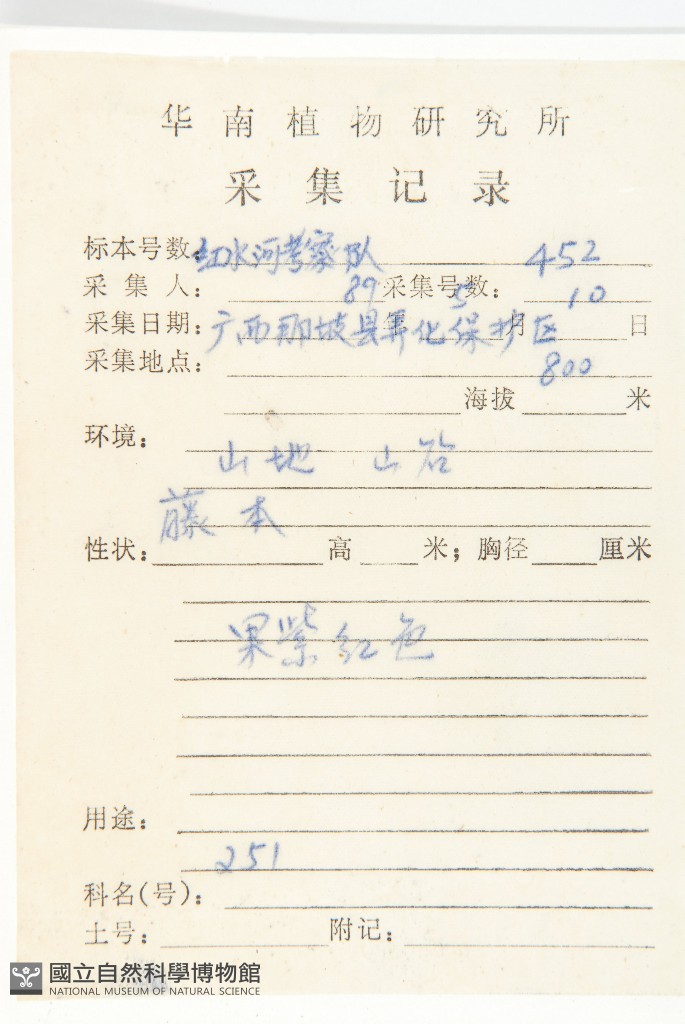 华南植物研究所
采集记录
标本号数:
红水河考察队 452
采集人: 采集号数:
89 5 10
采集日期: 年 月 日
广西那坡县弄化保护区
采集地点:
800
海拔 米
环境:
山地 山谷
藤本
性状: 高 米; 胸径 厘米
果紫红色
用途:
251
科名(号):
土号: 附记:
國立自然科學博物館
NATIONAL MUSEUM OF NATURAL SCIENCE